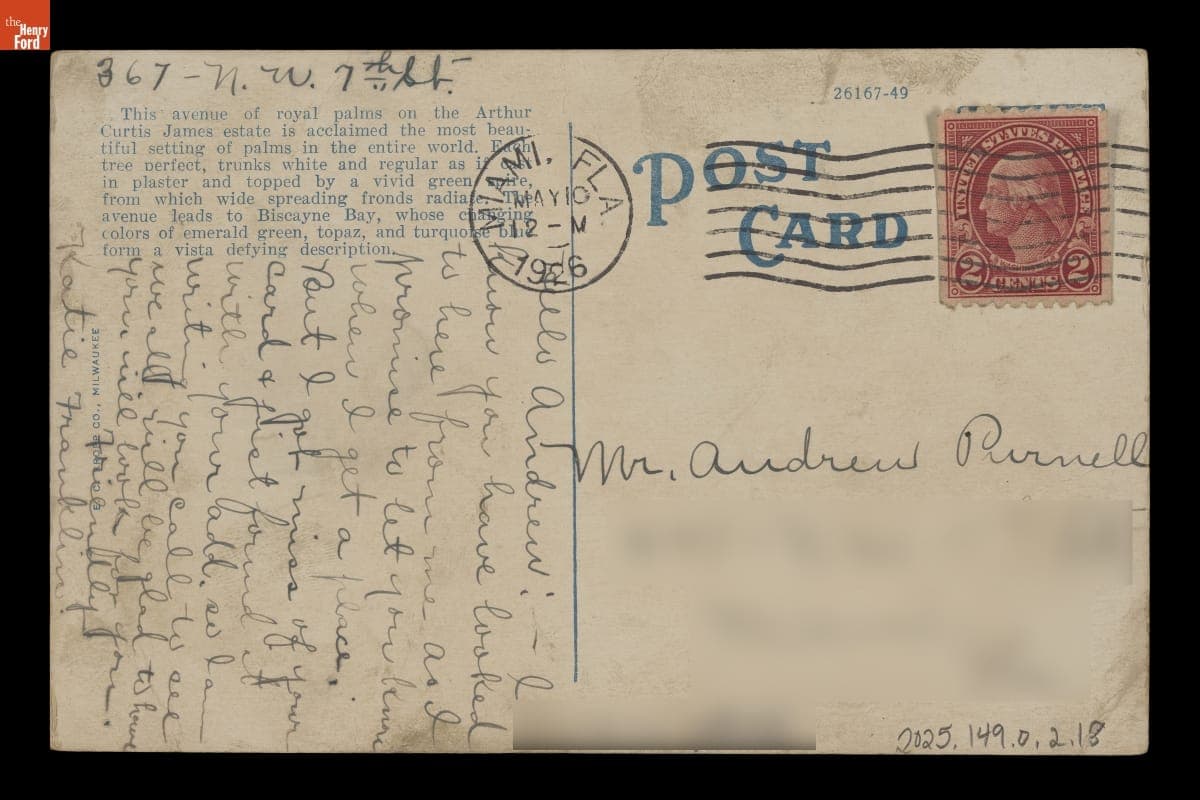 the
Henry
Ford
367 - N. W. 7th St.
This avenue of royal palms on the Arthur
Curtis James estate is acclaimed the most beau-
tiful setting of palms in the entire world. Each
tree perfect, trunks white and regular as if
in plaster and topped by a vivid green
from which wide spreading fronds radiate. The
avenue leads to Biscayne Bay, whose changing
colors of emerald green, topaz, and turquoise blue
form a vista defying description.
26167-49
POST
CARD
MIAMI, FLA
MAY 10
12 - M
1926
UNITED STATES POSTAGE
2 CENTS 2
Helo Andrew! - I
know you have looked
to hear from me as I
promise to let you know
when I get a place.
But I got miss of your
card & just found it
with your add. so I am
writing you call to see
we all will be glad to have
you will look for you.
Friendly
Katie Franklin.
E. C. KROPP CO., MILWAUKEE
Mr. Andrew Purnell
2025.149.0.2.18